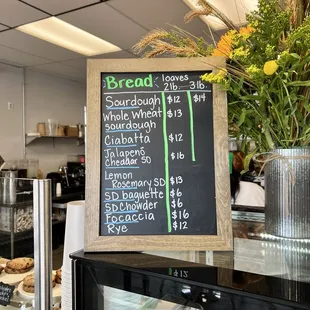 Bread loaves
2lb. 3lb.
Sourdough $12 $14
Whole Wheat $13
sourdough
Ciabatta $12
Jalapeño $16
Cheddar SD
Lemon
Rosemary SD $13
SD baguette $6
SD Chowder $6
Focaccia $16
Rye $12